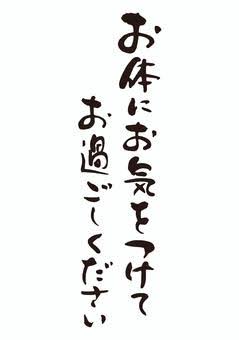 お体にお気をつけて
お過ごしください